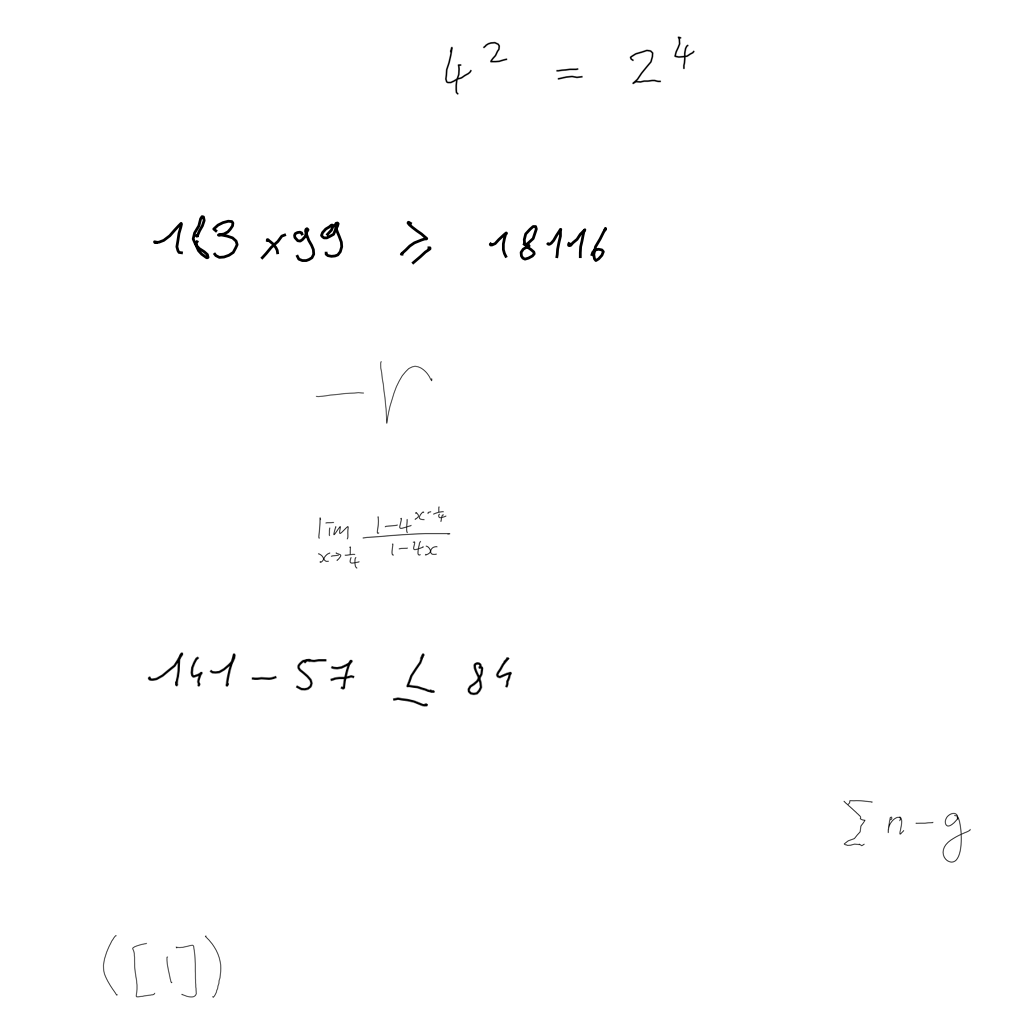 4² = 2⁴
183 × 99 ⩾ 18116
− r
lim x→1/4 (1−4^(x−1/4))/(1−4x)
141 − 57 ≤ 84
∑ n − g
([1])